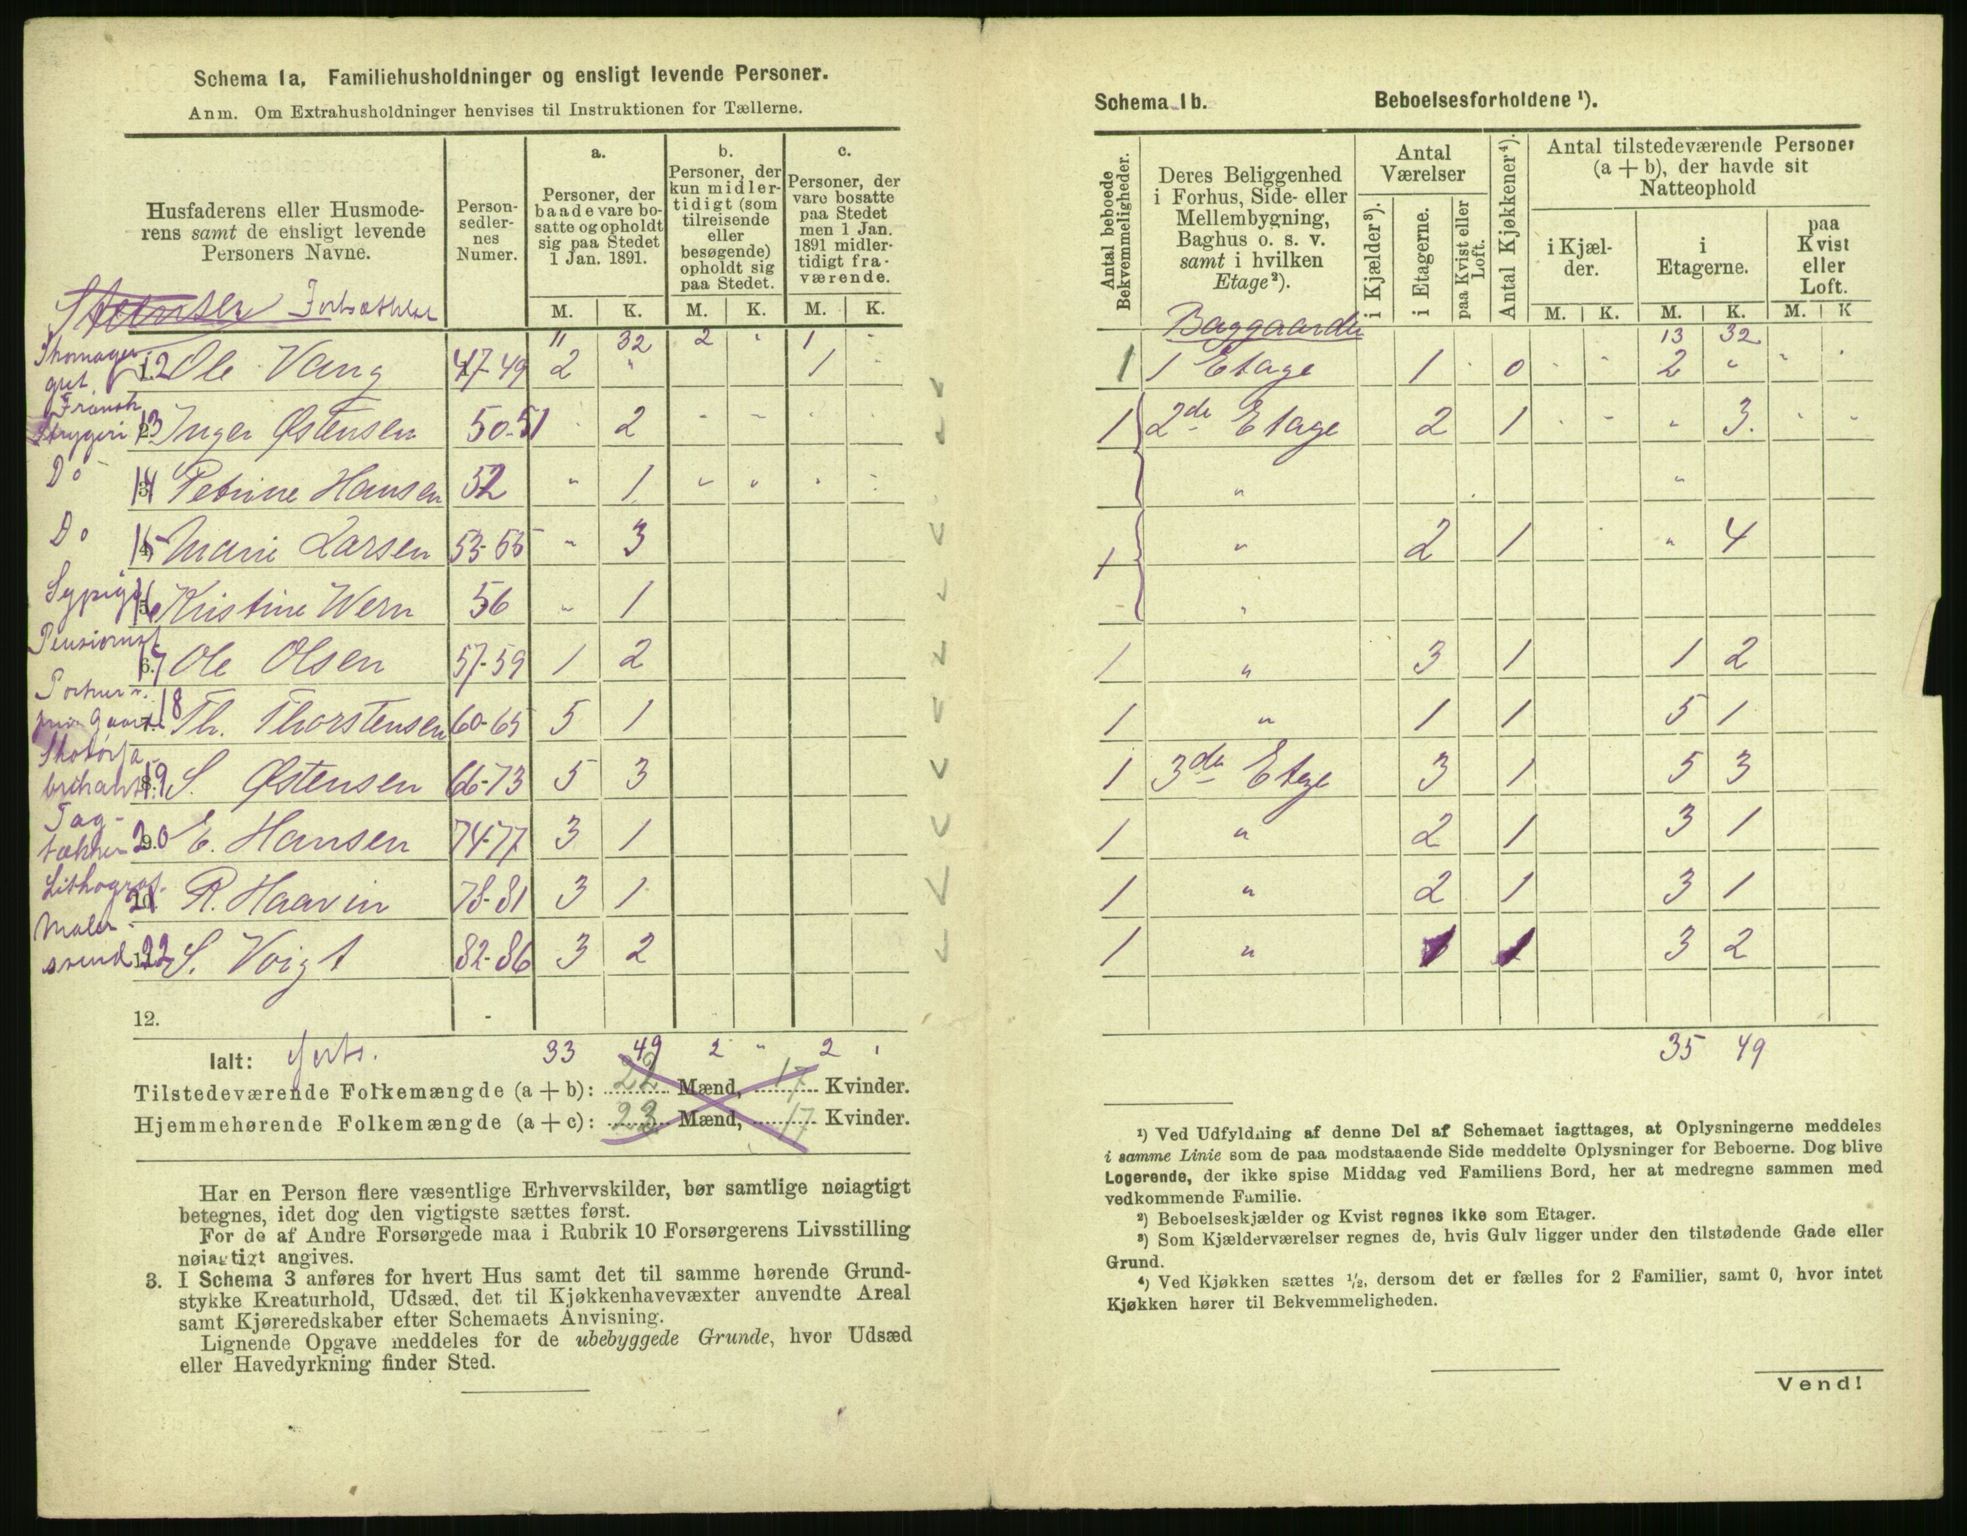 Schema 1a. Familiehusholdninger og ensligt levende Personer.
Anm. Om Extrahusholdninger henvises til Instruktionen for Tællerne.
Husfaderens eller Husmoderens samt de ensligt levende Personers Navne.
Personsedlernes Numer.
a.
Personer, der baade vare bosatte og opholdt sig paa Stedet 1 Jan. 1891.
b.
Personer, der kun midlertidigt (som tilreisende eller besøgende) opholdt sig paa Stedet.
c.
Personer, der vare bosatte paa Stedet men 1 Jan. 1891 midlertidigt fraværende.
M. K. M. K. M. K.
11 32 2 " 1 -
12 Ole Vang 47-49 2 " 1
Fransk Strygeri 13 Inger Østensen 50-51 2
Do 14 Petrine Hansen 52 " 1
Do 15 Marie Larsen 53-55 " 3
Sypige 16 Kristine Wern 56 " 1
Pensionist 17 Ole Olsen 57-59 1 2
18 Th. Thorstensen 60-65 5 1
19 S. Østensen 66-73 5 3
Tagtækker 20 E. Hansen 74-77 3 1
Lithograf 21 R. Haavin 78-81 3 1
Malersvend 22 S. Voigt 82-86 3 2
12.
Ialt: 33 49 2 " 2
Tilstedeværende Folkemængde (a + b): 22 Mænd, 17 Kvinder.
Hjemmehørende Folkemængde (a + c): 23 Mænd, 17 Kvinder.
Har en Person flere væsentlige Erhvervskilder, bør samtlige nøiagtigt
betegnes, idet dog den vigtigste sættes først.
For de af Andre Forsørgede maa i Rubrik 10 Forsørgerens Livsstilling
nøiagtigt angives.
3. I Schema 3 anføres for hvert Hus samt det til samme hørende Grund-
stykke Kreaturhold, Udsæd, det til Kjøkkenhavevæxter anvendte Areal
samt Kjøreredskaber efter Schemaets Anvisning.
Lignende Opgave meddeles for de ubebyggede Grunde, hvor Udsæd
eller Havedyrkning finder Sted.
Schema 1b. Beboelsesforholdene ¹).
Antal beboede Bekvemmeligheder.
Deres Beliggenhed i Forhus, Side- eller Mellembygning, Baghus o. s. v. samt i hvilken Etage²).
Antal Værelser
i Kjælder³).
i Etagerne.
paa Kvist eller Loft.
Antal Kjøkkener⁴).
Antal tilstedeværende Personer (a + b), der havde sit Natteophold
i Kjælder.
i Etagerne.
paa Kvist eller Loft.
M. K. M. K. M. K
Baggaarden 13 32
1 1 Etage 1 0 2 "
1 2de Etage 2 1 " 3.
" "
1 " 2 1 " 4
"
1 " 3 1 1 2
1 " 1 1 5 1
1 3de Etage 3 1 5 3
1 " 2 1 3 1
1 " 2 1 3 1
1 " 1 1 3 2
35 49
¹) Ved Udfyldning af denne Del af Schemaet iagttages, at Oplysningerne meddeles
i samme Linie som de paa modstaaende Side meddelte Oplysninger for Beboerne. Dog blive
Logerende, der ikke spise Middag ved Familiens Bord, her at medregne sammen med
vedkommende Familie.
²) Beboelseskjælder og Kvist regnes ikke som Etager.
³) Som Kjælderværelser regnes de, hvis Gulv ligger under den tilstødende Gade eller
Grund.
⁴) Ved Kjøkken sættes ½, dersom det er fælles for 2 Familier, samt 0, hvor intet
Kjøkken hører til Bekvemmeligheden.
Vend!